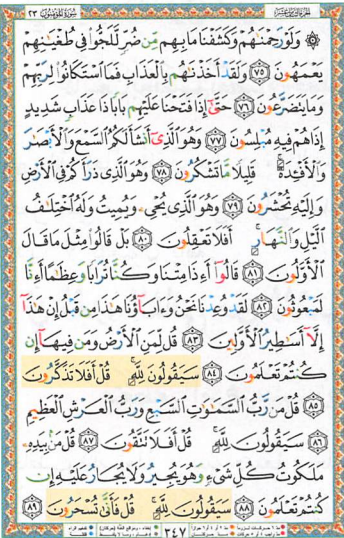 سُورَةُ المُؤْمِنُون ٢٣ الجزء الثامن عشر
۞ وَلَوْ رَحِمْنَٰهُمْ وَكَشَفْنَا مَا بِهِم مِّن ضُرٍّ لَّلَجُّوا۟ فِى طُغْيَٰنِهِمْ
يَعْمَهُونَ ٧٥ وَلَقَدْ أَخَذْنَٰهُم بِٱلْعَذَابِ فَمَا ٱسْتَكَانُوا۟ لِرَبِّهِمْ
وَمَا يَتَضَرَّعُونَ ٧٦ حَتَّىٰٓ إِذَا فَتَحْنَا عَلَيْهِم بَابًا ذَا عَذَابٍ شَدِيدٍ
إِذَا هُمْ فِيهِ مُبْلِسُونَ ٧٧ وَهُوَ ٱلَّذِىٓ أَنشَأَ لَكُمُ ٱلسَّمْعَ وَٱلْأَبْصَٰرَ
وَٱلْأَفْـِٔدَةَ ۚ قَلِيلًا مَّا تَشْكُرُونَ ٧٨ وَهُوَ ٱلَّذِى ذَرَأَكُمْ فِى ٱلْأَرْضِ
وَإِلَيْهِ تُحْشَرُونَ ٧٩ وَهُوَ ٱلَّذِى يُحْىِۦ وَيُمِيتُ وَلَهُ ٱخْتِلَٰفُ
ٱلَّيْلِ وَٱلنَّهَارِ ۚ أَفَلَا تَعْقِلُونَ ٨٠ بَلْ قَالُوا۟ مِثْلَ مَا قَالَ
ٱلْأَوَّلُونَ ٨١ قَالُوٓا۟ أَءِذَا مِتْنَا وَكُنَّا تُرَابًا وَعِظَٰمًا أَءِنَّا
لَمَبْعُوثُونَ ٨٢ لَقَدْ وُعِدْنَا نَحْنُ وَءَابَآؤُنَا هَٰذَا مِن قَبْلُ إِنْ هَٰذَآ
إِلَّآ أَسَٰطِيرُ ٱلْأَوَّلِينَ ٨٣ قُل لِّمَنِ ٱلْأَرْضُ وَمَن فِيهَآ إِن
كُنتُمْ تَعْلَمُونَ ٨٤ سَيَقُولُونَ لِلَّهِ ۚ قُلْ أَفَلَا تَذَكَّرُونَ
٨٥ قُلْ مَن رَّبُّ ٱلسَّمَٰوَٰتِ ٱلسَّبْعِ وَرَبُّ ٱلْعَرْشِ ٱلْعَظِيمِ
٨٦ سَيَقُولُونَ لِلَّهِ ۚ قُلْ أَفَلَا تَتَّقُونَ ٨٧ قُلْ مَنۢ بِيَدِهِۦ
مَلَكُوتُ كُلِّ شَىْءٍ وَهُوَ يُجِيرُ وَلَا يُجَارُ عَلَيْهِ إِن
كُنتُمْ تَعْلَمُونَ ٨٨ سَيَقُولُونَ لِلَّهِ ۚ قُلْ فَأَنَّىٰ تُسْحَرُونَ ٨٩
٣٤٧